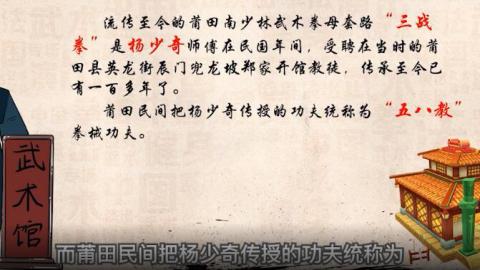 流传至今的莆田南少林武术拳母套路“三战
拳”是杨少奇师傅在民国年间，受聘在当时的莆
田县英龙街辰门兜龙坡郑家开馆教徒，传承至今已
有一百多年了。
莆田民间把杨少奇传授的功夫统称为“五八教”
拳械功夫。
武术馆
而莆田民间把杨少奇传授的功夫统称为